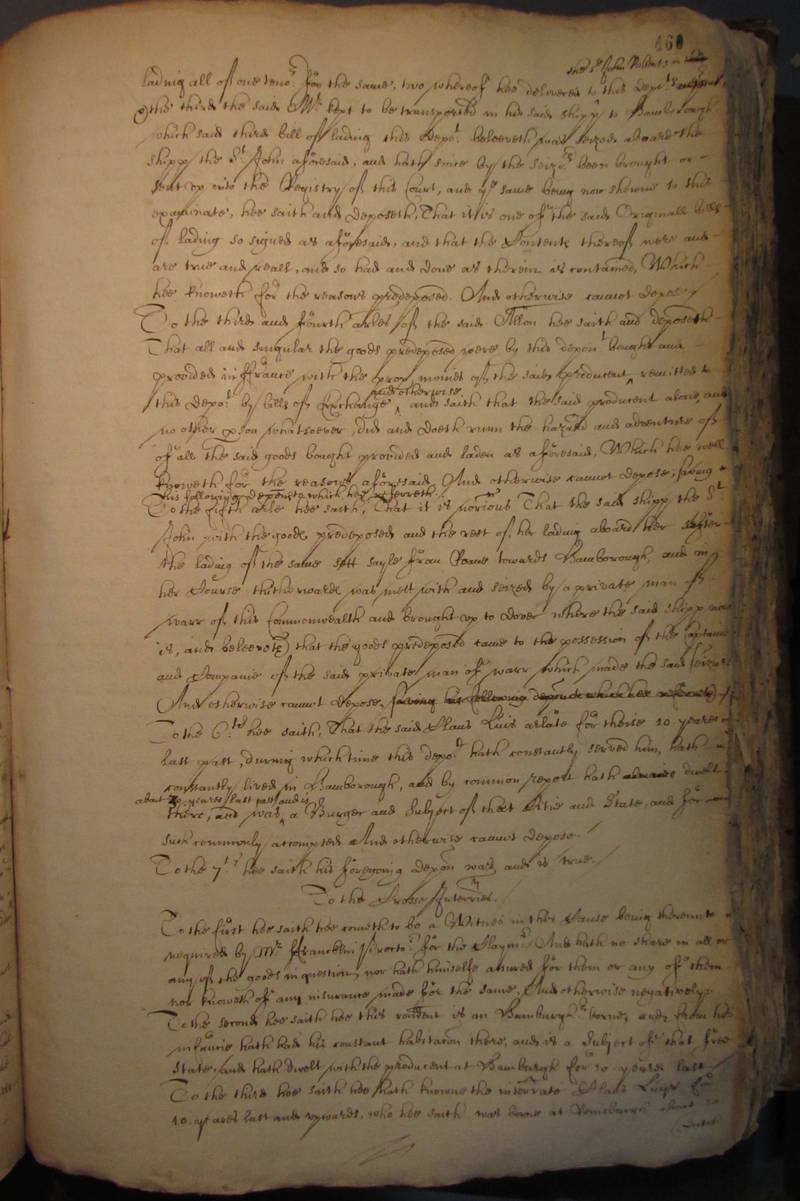 460
the sd John
lading all of one teno:r for the same, two whereof hee delivered to this depo:t
the third the said Mr kept to be transported in his said shipp to Hamborough
which said third bill of lading this depo:t beleeveth was seized aboard the
shipp the St John aforesaid, and hath since by the seiz:rs been brought or
sent up into the Registry of this Court, and ye same being now shewne to this
examinate, hee saith and deposeth, That it is one of the said Originall bills
of lading so signed as aforesaid, and that the Contents thereof were and
are true and reall, and so had and done as therein is contained, Which
hee knoweth for the reasons predeposed. And otherwise cannot depose
To the third and fourth arles of the said Allon hee saith and deposeth
That all and singular the goods predeposed were by this depon:t bought and
provided in ffrance with the prop monies of the said producent remitted to
and otherwise
this depo:t by bills of Exchange and saith that the said producent alone and
no other pson whatsoever, did and doeth runn the hazard and adventure of
of all the said goods bought provided and laden as aforesaid, Which hee well
knoweth for the reasons aforesaid, And otherwise cannot depose, saving
his following deposits which hee referreth
To the fifth arle hee saith, That it is notious That the said shipp the St
John with the goods predeposed and the rest of her lading aboard her after
the lading of the same sett sayle from Roane towards Hamborough, and in
her Course thitherwards was mett with and seized by a private man of
warr of this Commonwealth and brought up to Dover where the said shipp now
is, and beleeveth that the goods predeposed came to the possession of the Captaine
and Companie of the said private man of warr which made the said seizure
And otherwise cannot depose, saving his following deposits which hee referreth
To the 6:th hee saith, That the said Claus Luis arlate for theise 10 yeares
last past, during which time this depo:t hath constantly served him, hath
constantly lived in Hamborough, and by common report hath dwelt
about 20 yeares last past and is
there, and was a Burger and Subject of that Citie and State, and for
such commonly accompted And otherwise cannot depose.
To the 7th hee saith his foregoing depon was and is true.
To the Crosse Interries.
To the first hee saith hee cometh to be a Witnes in this Cause being thereunto
required by Mr ffrancklin Proctor for the Claymr: And hath no share in all or
any of the goods in question, nor hath himselfe assured for them or any of them
nor knoweth of any insurance made for the same, And otherwise negatively
To the second hee saith hee this rondent is an Hamburgr borne, and from his
infancie hath had his constant habitacon there, and is a Subject of that free
State, and hath dwelt with the producent at Hamburgh for 10 yeares last
To the third hee saith hee hath knowne the interrate Claus Luis
10. yeares last and upwards, who hee saith was borne at about 20